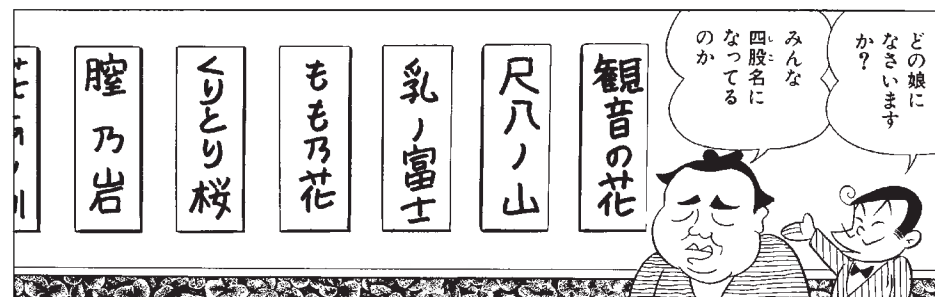 どの娘に
なさいます
か?
みんな
四股名に
なってる
のか
観音の花
尺八ノ山
乳ノ富士
もも乃花
くりとり桜
膣乃岩